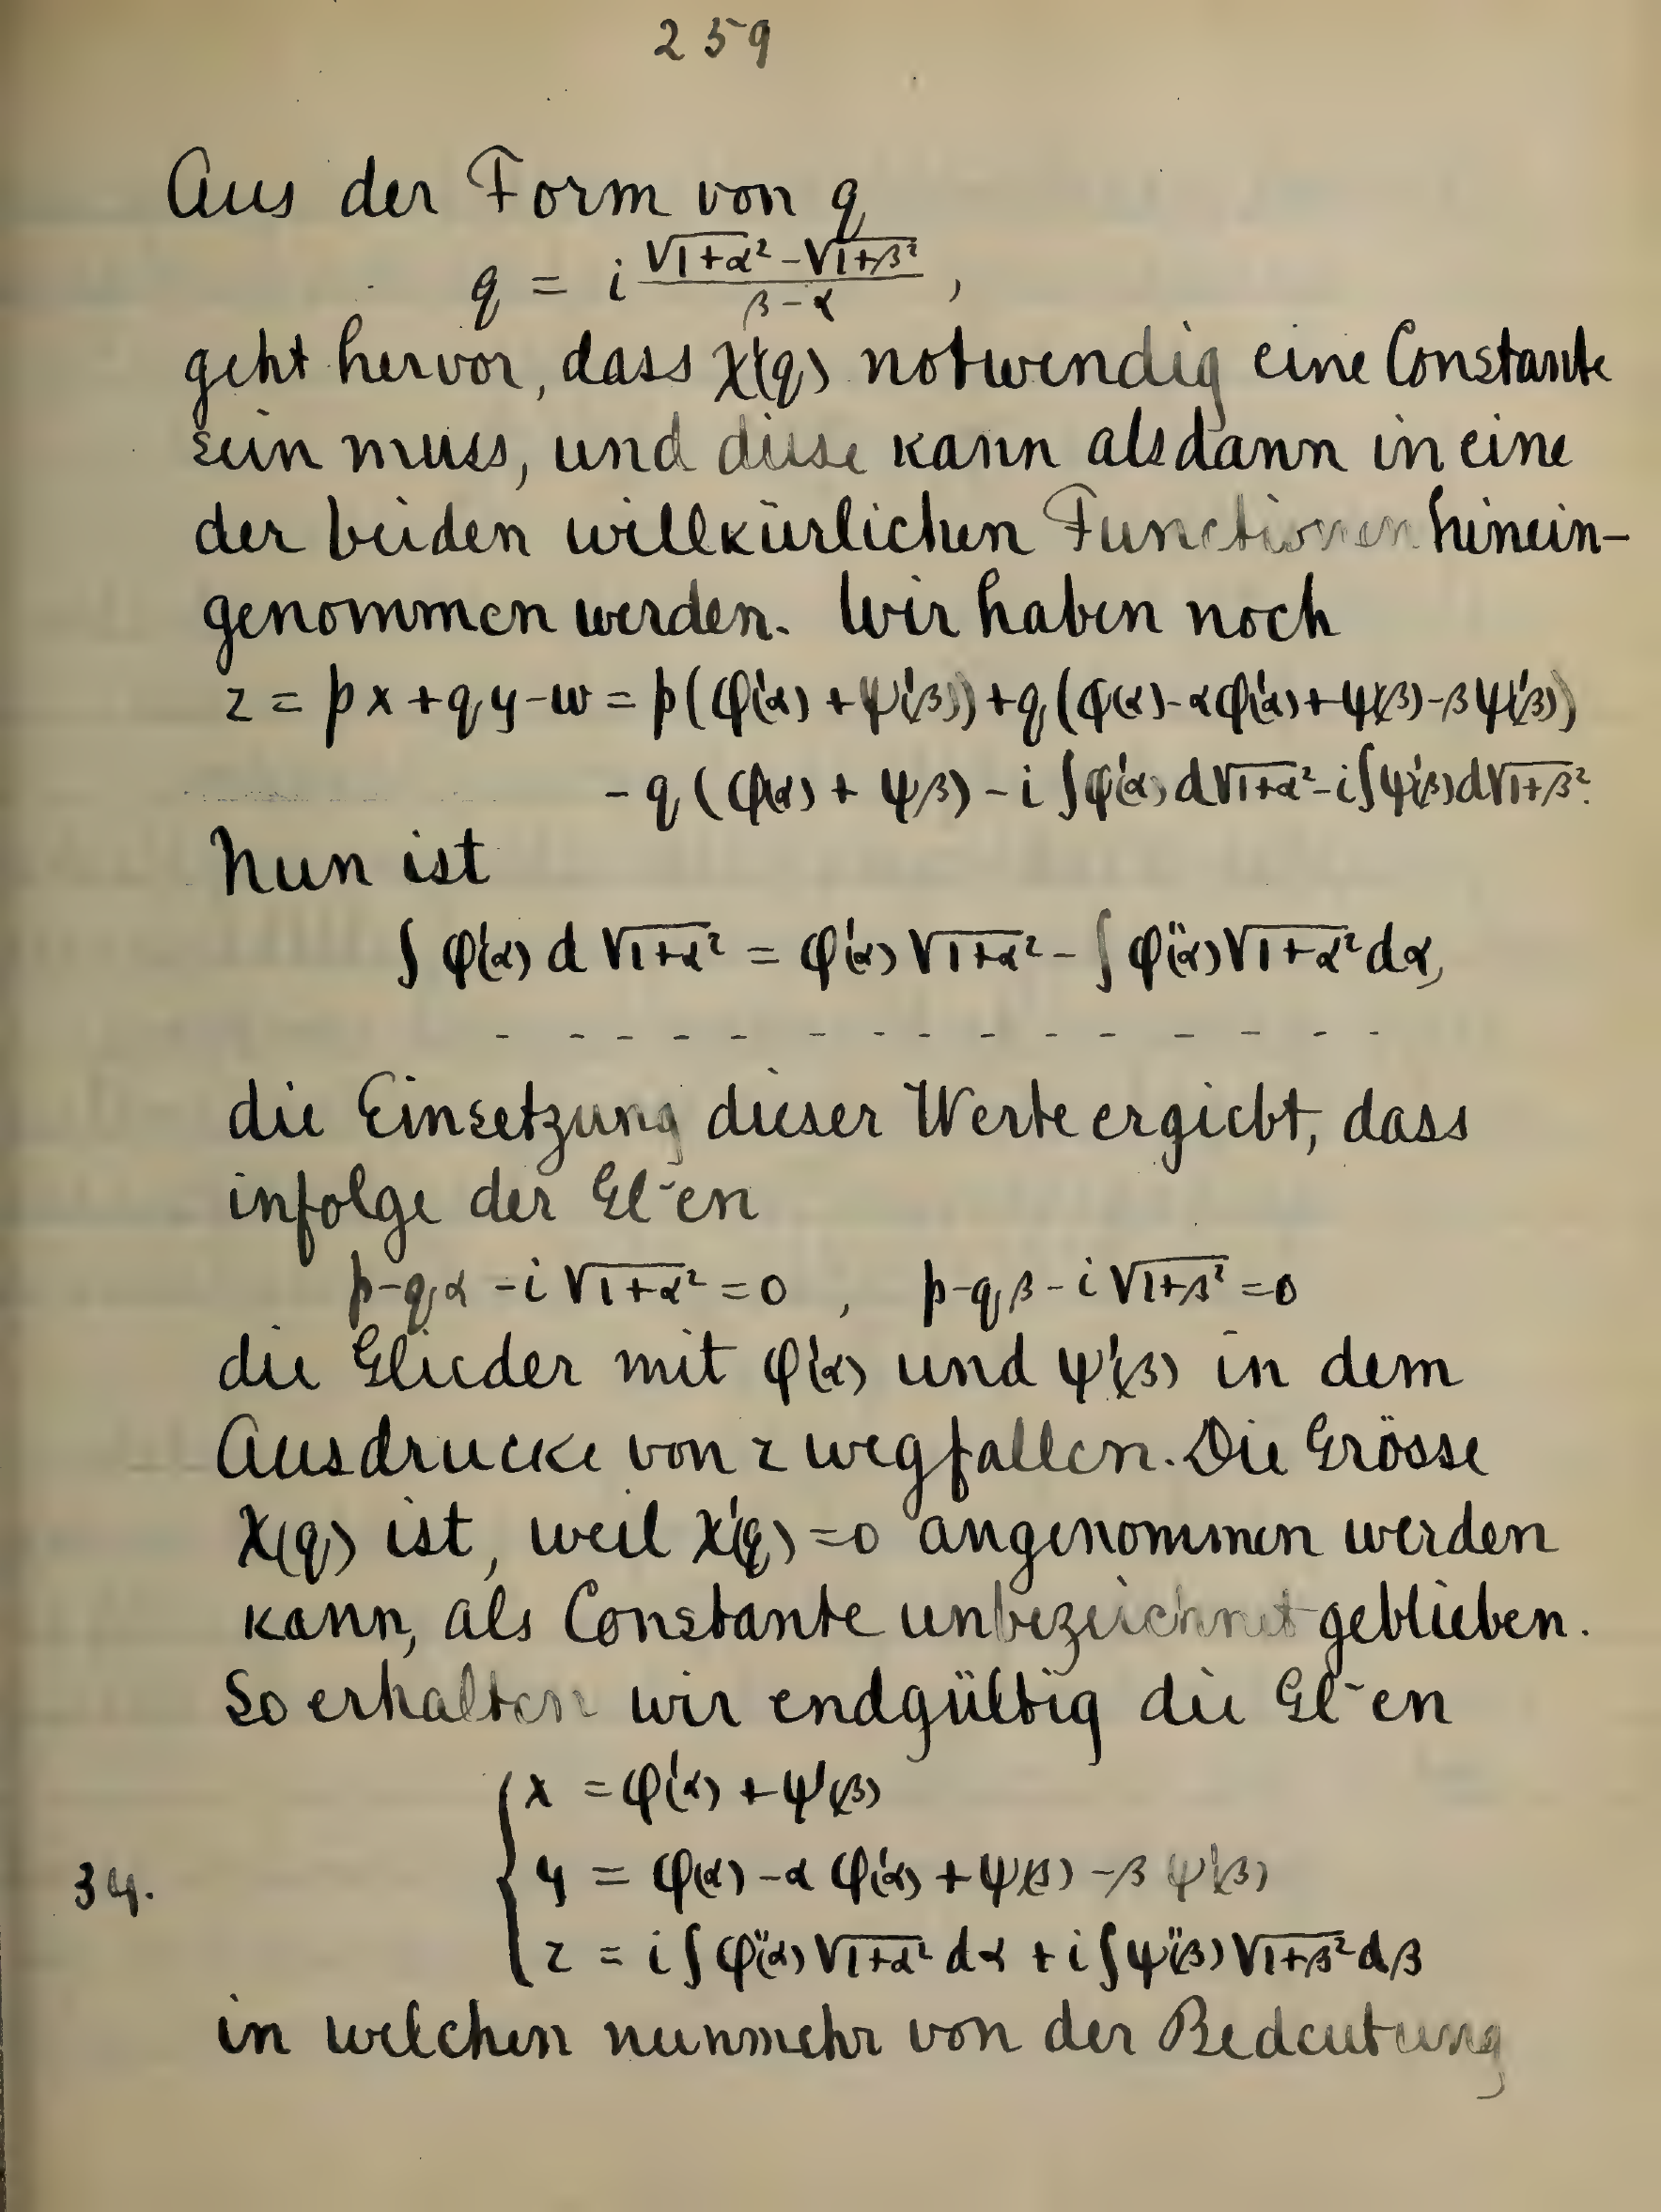 259
Aus der Form von q
q = i (√1+α² - √1+β²)/(β-α) ,
geht hervor, dass χ'(q) notwendig eine Constante
sein muss, und diese kann alsdann in eine
der beiden willkürlichen Functionen hinein-
genommen werden. Wir haben noch
z = px + qy - w = p(φ'(α) + ψ'(β)) + q(φ(α) - αφ'(α) + ψ(β) - βψ'(β))
- q(φ(α) + ψβ) - i∫φ'(α) d√1+α² - i∫ψ'(β)d√1+β².
Nun ist
∫ φ'(α) d √1+α² = φ'(α) √1+α² - ∫ φ''(α)√1+α² dα,
- - - - - - - - - - - - - - -
die Einsetzung dieser Werte ergiebt, dass
infolge der Gl-en
p-qα - i √1+α² = 0 , p-qβ - i √1+β² = 0
die Glieder mit φ'(α) und ψ'(β) in dem
Ausdrucke von z wegfallen. Die Grösse
χ(q) ist, weil χ'(q) = 0 angenommen werden
kann, als Constante unbezeichnet geblieben.
So erhalten wir endgültig die Gl-en
x = φ'(α) + ψ'(β)
34. y = φ(α) - α φ'(α) + ψ(β) - β ψ'(β)
z = i∫φ''(α)√1+α² dα + i∫ψ''(β)√1+β² dβ
in welchen nunmehr von der Bedeutung